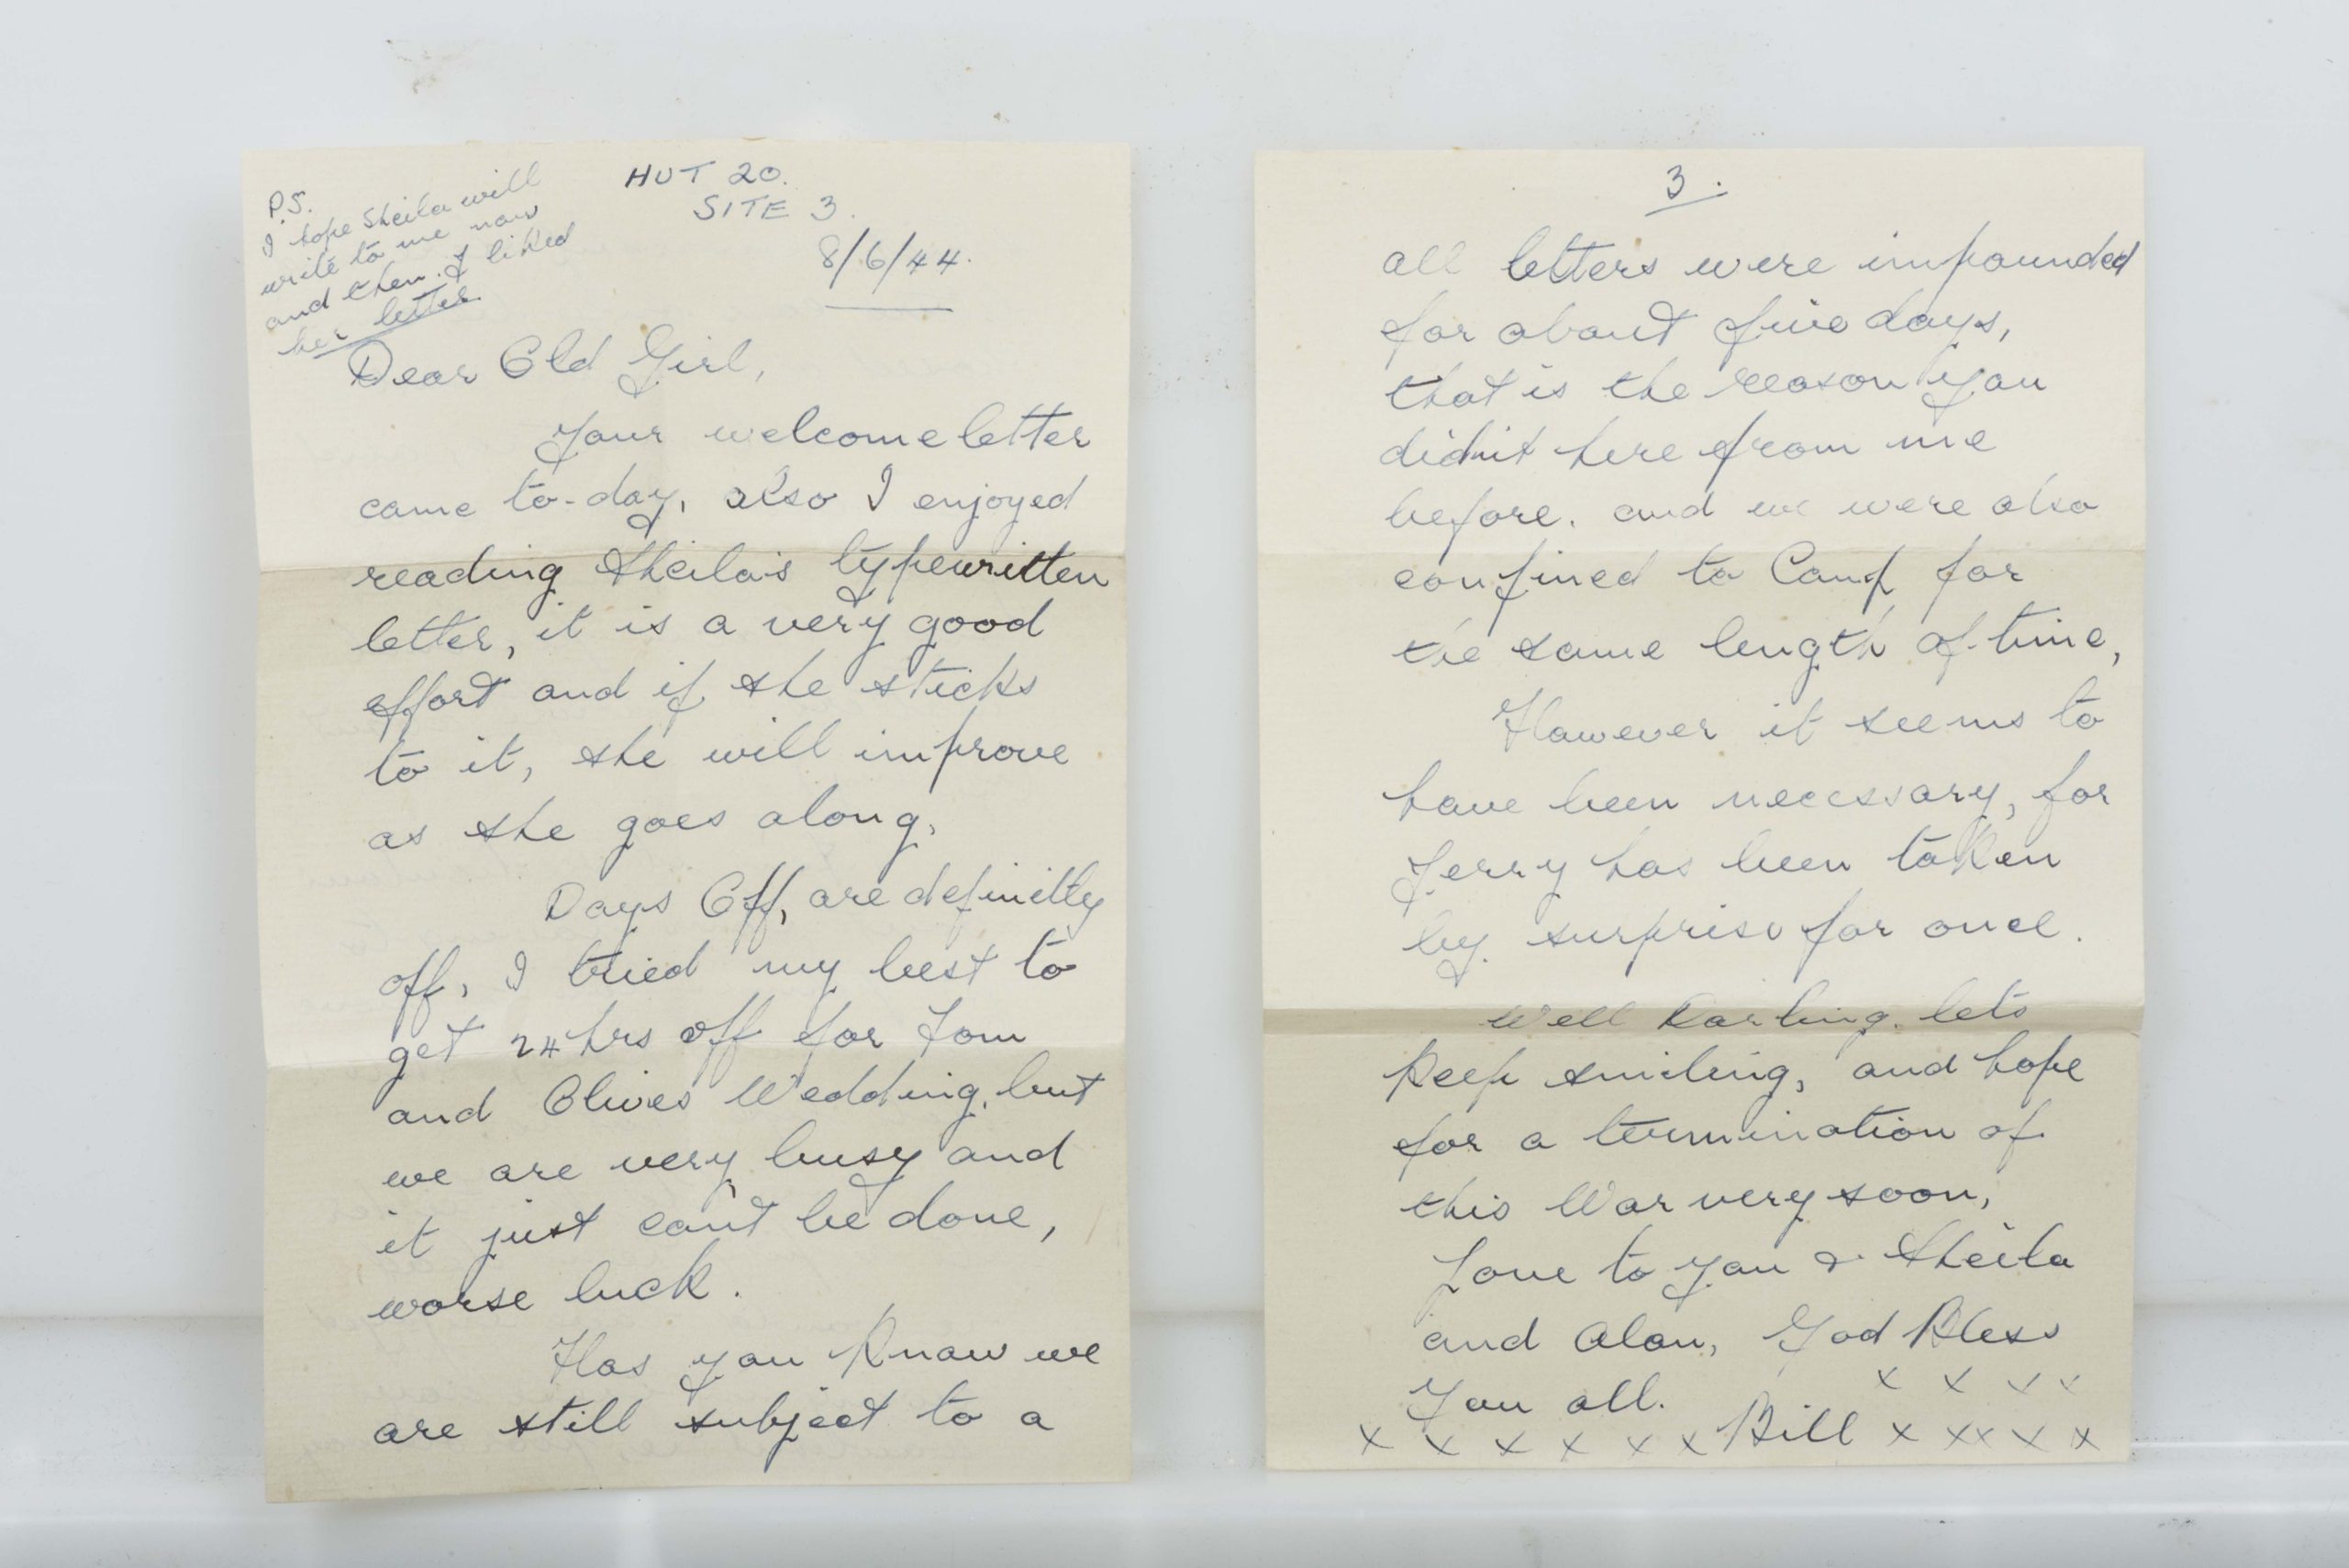 P.S.
I hope Sheila will
write to me now
and then. I liked
her letter
HUT 20.
SITE 3.
8/6/44.
Dear Old Girl,
Your welcome letter
came to-day, also I enjoyed
reading Sheila's typewritten
letter, it is a very good
effort and if she sticks
to it, she will improve
as she goes along,
Days Off, are definitly
off, I tried my best to
get 24 hrs off for Tom
and Olives Wedding, but
we are very busy and
it just can't be done,
worse luck.
Has you know we
are still subject to a
3.
all letters were impounded
for about five days,
that is the reason you
didn't here from me
before. and we were also
confined to Camp for
the same length of time,
However it seems to
have been necessary, for
Jerry has been taken
by surprise for once.
Well Darling, lets
keep smiling, and hope
for a termination of
this War very soon,
Love to you & Sheila
and Alan, God Bless
x x x x
You all.
x x x x x x Bill x xx x x